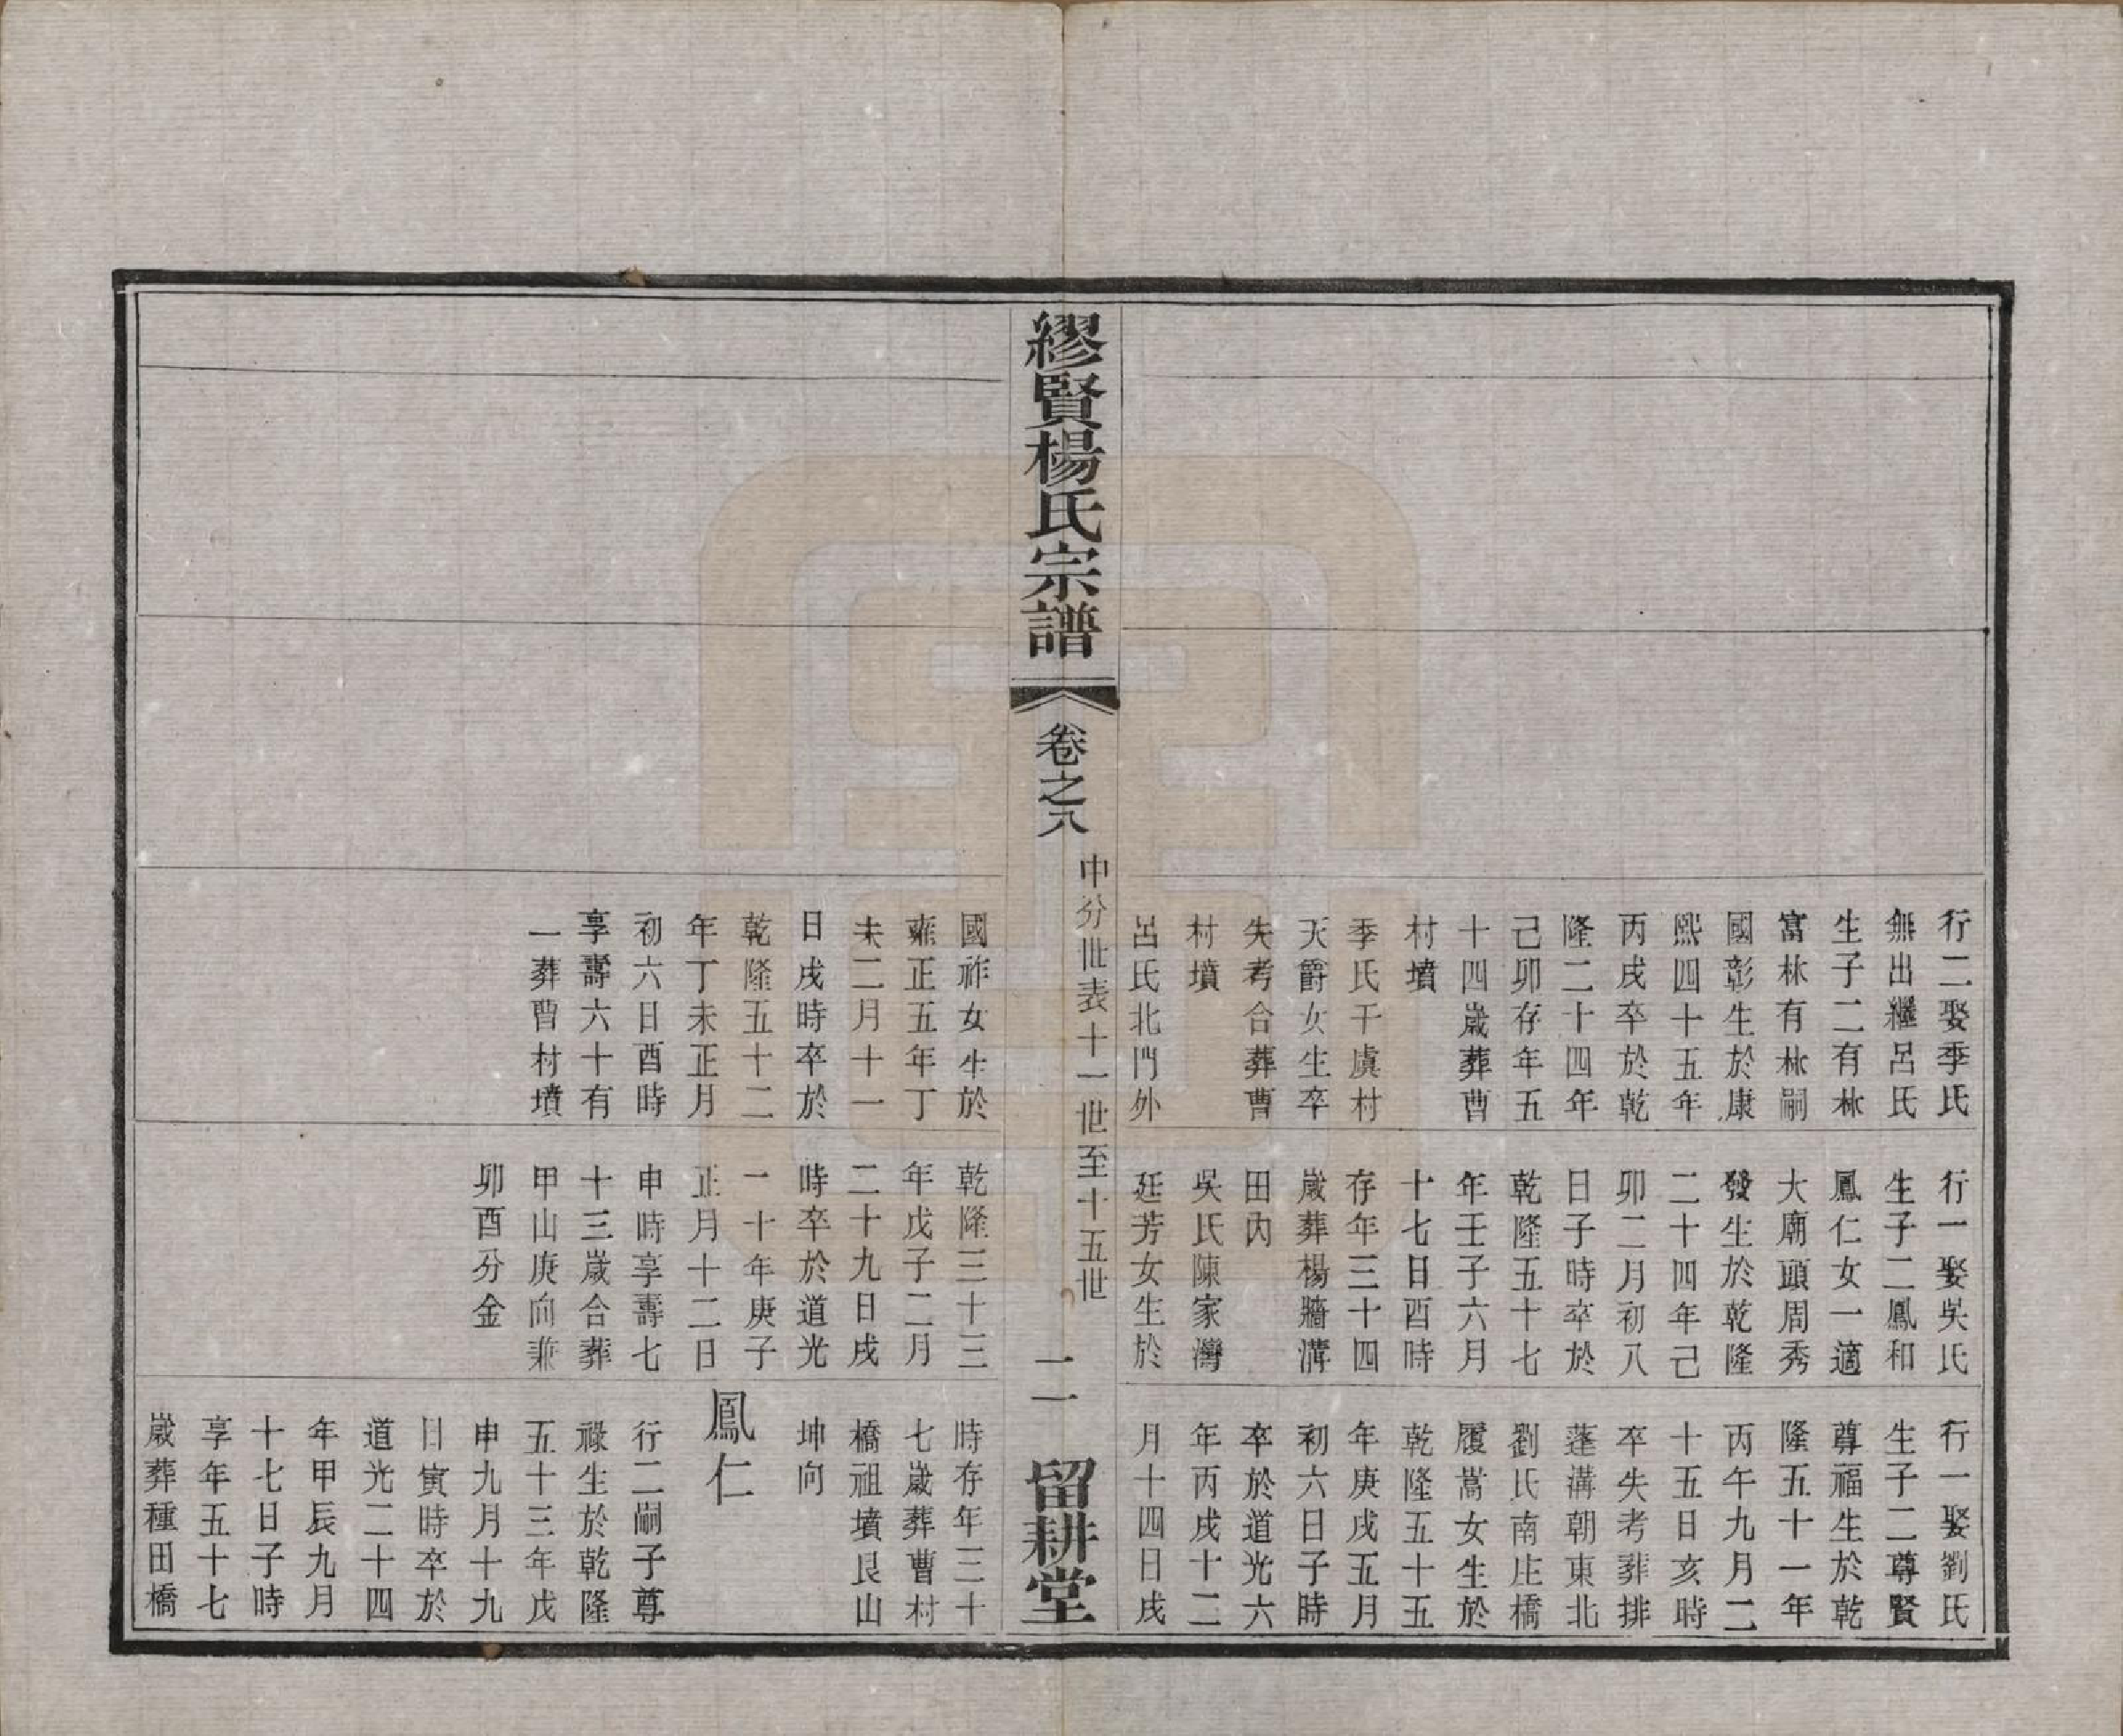 行二娶季氏
無出繼呂氏
生子二有林
富林有林嗣
國彰生於康
熙四十五年
丙戌卒於乾
隆二十四年
己卯存年五
十四歲葬曹
村墳
季氏千虞村
天爵女生卒
失考合葬曹
村墳
呂氏北門外
行一娶吳氏
生子二鳳和
鳳仁女一適
大廟頭周秀
發生於乾隆
二十四年己
卯二月初八
日子時卒於
乾隆五十七
年壬子六月
十七日酉時
存年三十四
歲葬楊牆溝
田內
吳氏陳家灣
廷芳女生於
行一娶劉氏
生子二尊賢
尊福生於乾
隆五十一年
丙午九月二
十五日亥時
卒失考葬排
蓬溝朝東北
劉氏南庄橋
履嵩女生於
乾隆五十五
年庚戌五月
初六日子時
卒於道光六
年丙戌十二
月十四日戌
繆賢楊氏宗譜
卷之八
中分世表十一世至十五世
二一
留耕堂
國祚女生於
雍正五年丁
未二月十一
日戌時卒於
乾隆五十二
年丁未正月
初六日酉時
享壽六十有
一葬曹村墳
乾隆三十三
年戊子二月
二十九日戌
時卒於道光
二十年庚子
正月十二日
申時享壽七
十三歲合葬
甲山庚向兼
卯酉分金
時存年三十
七歲葬曹村
橋祖墳艮山
坤向
鳳仁
行二嗣子尊
祿生於乾隆
五十三年戊
申九月十九
日寅時卒於
道光二十四
年甲辰九月
十七日子時
享年五十七
歲葬種田橋